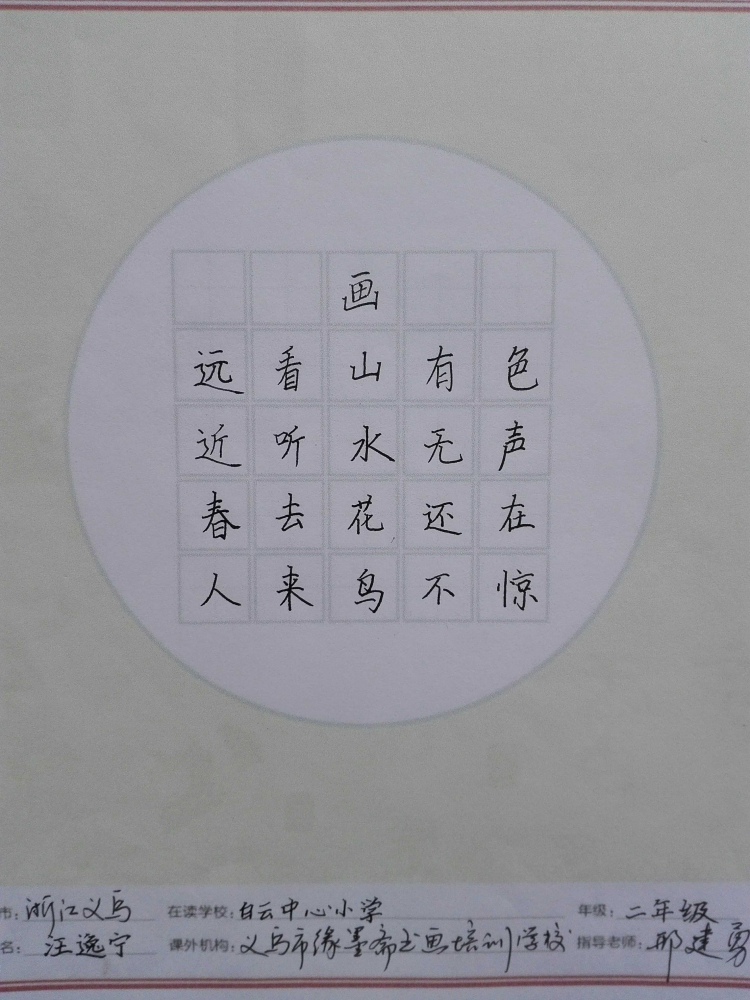 画
远看山有色
近听水无声
春去花还在
人来鸟不惊
市：浙江义乌 在读学校：白云中心小学 年级：二年级
名：汪逸宁 课外机构：义乌市缘墨斋书画培训学校 指导老师：邢建勇